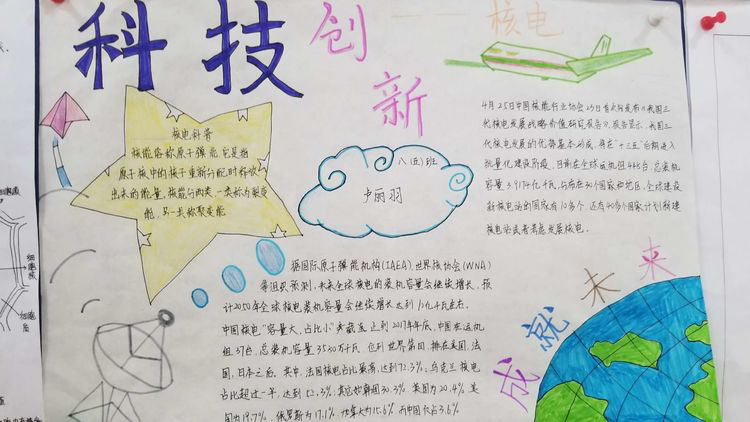 科技创新
——核电
核电科普
核能俗称原子弹能,它是指
原子核中的核子重新分配时释放
出来的能量,核能分两类,一类称为裂变
能,另一类称聚变能
八(五)班
卢丽羽
4月25日中国核能行业协会23日首次向发布《我国三
代核电发展战略价值研究报告》,报告显示,我国三
代核电发展的优势基本功成,将在"十三五"后期进入
批量化建设阶段,目前在全球运机组448台,总装机
容量3.9174亿千瓦,分布在30个国家和地区,全球建设
新核电站的国家有10多个,还有40多个国家计划新建
核电站或者考虑发展核电。
据国际原子弹能机构(IAEA),世界核协会(WNA)
等组织预测,未来全球核电的装机容量会继续增长,预
计2050年全球核电装机容量会继续增长达到10亿千瓦左右。
中国核电"容量大,占比小"
到2017年年底,中国在运机
组37台,总装机容量3580万千瓦,位列世界第四,排在美国,法
国,日本之后,其中,法国核电占比最高,达到72.3%,乌克兰核电
占比超过一半,达到52.3%,其它如韩国30.3%,英国为20.4%,美
国为19.7%,俄罗斯为17.1%,加拿大为15.6%,而中国仅占3.6%
成就未来
细胞核